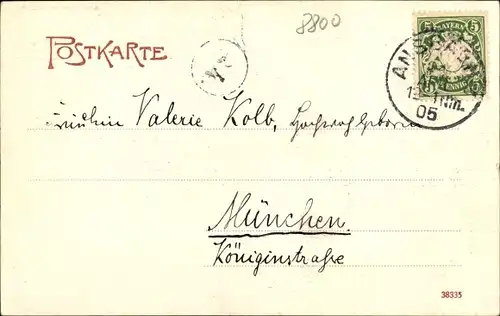 8800
POSTKARTE
5 BAYERN 5
ANSBACH
05
Fräulein Valerie Kolb, Hochwohlgeboren
München.
Königinstraße
38335